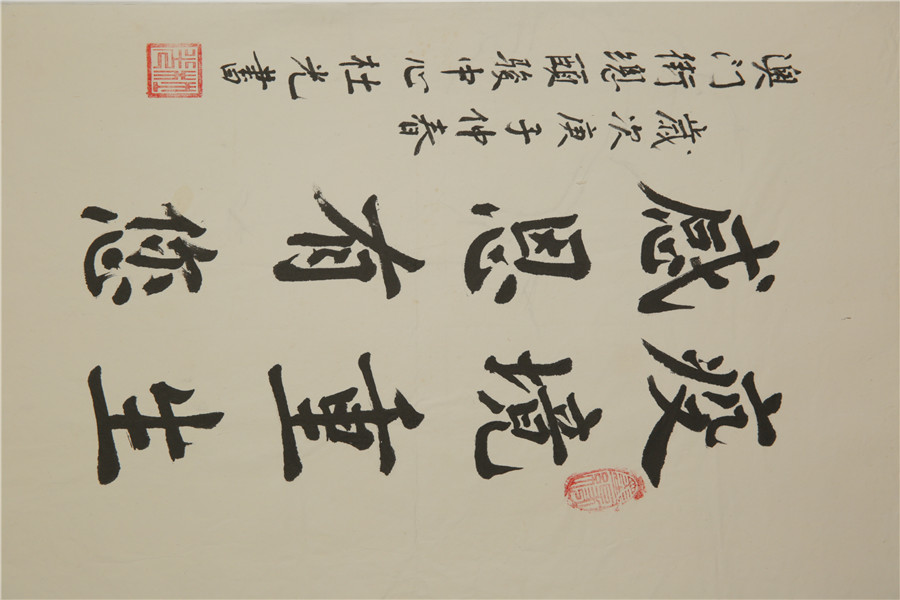 疫境重生
感恩有您
歲次庚子仲春
澳门街總頤駿中心杜光書